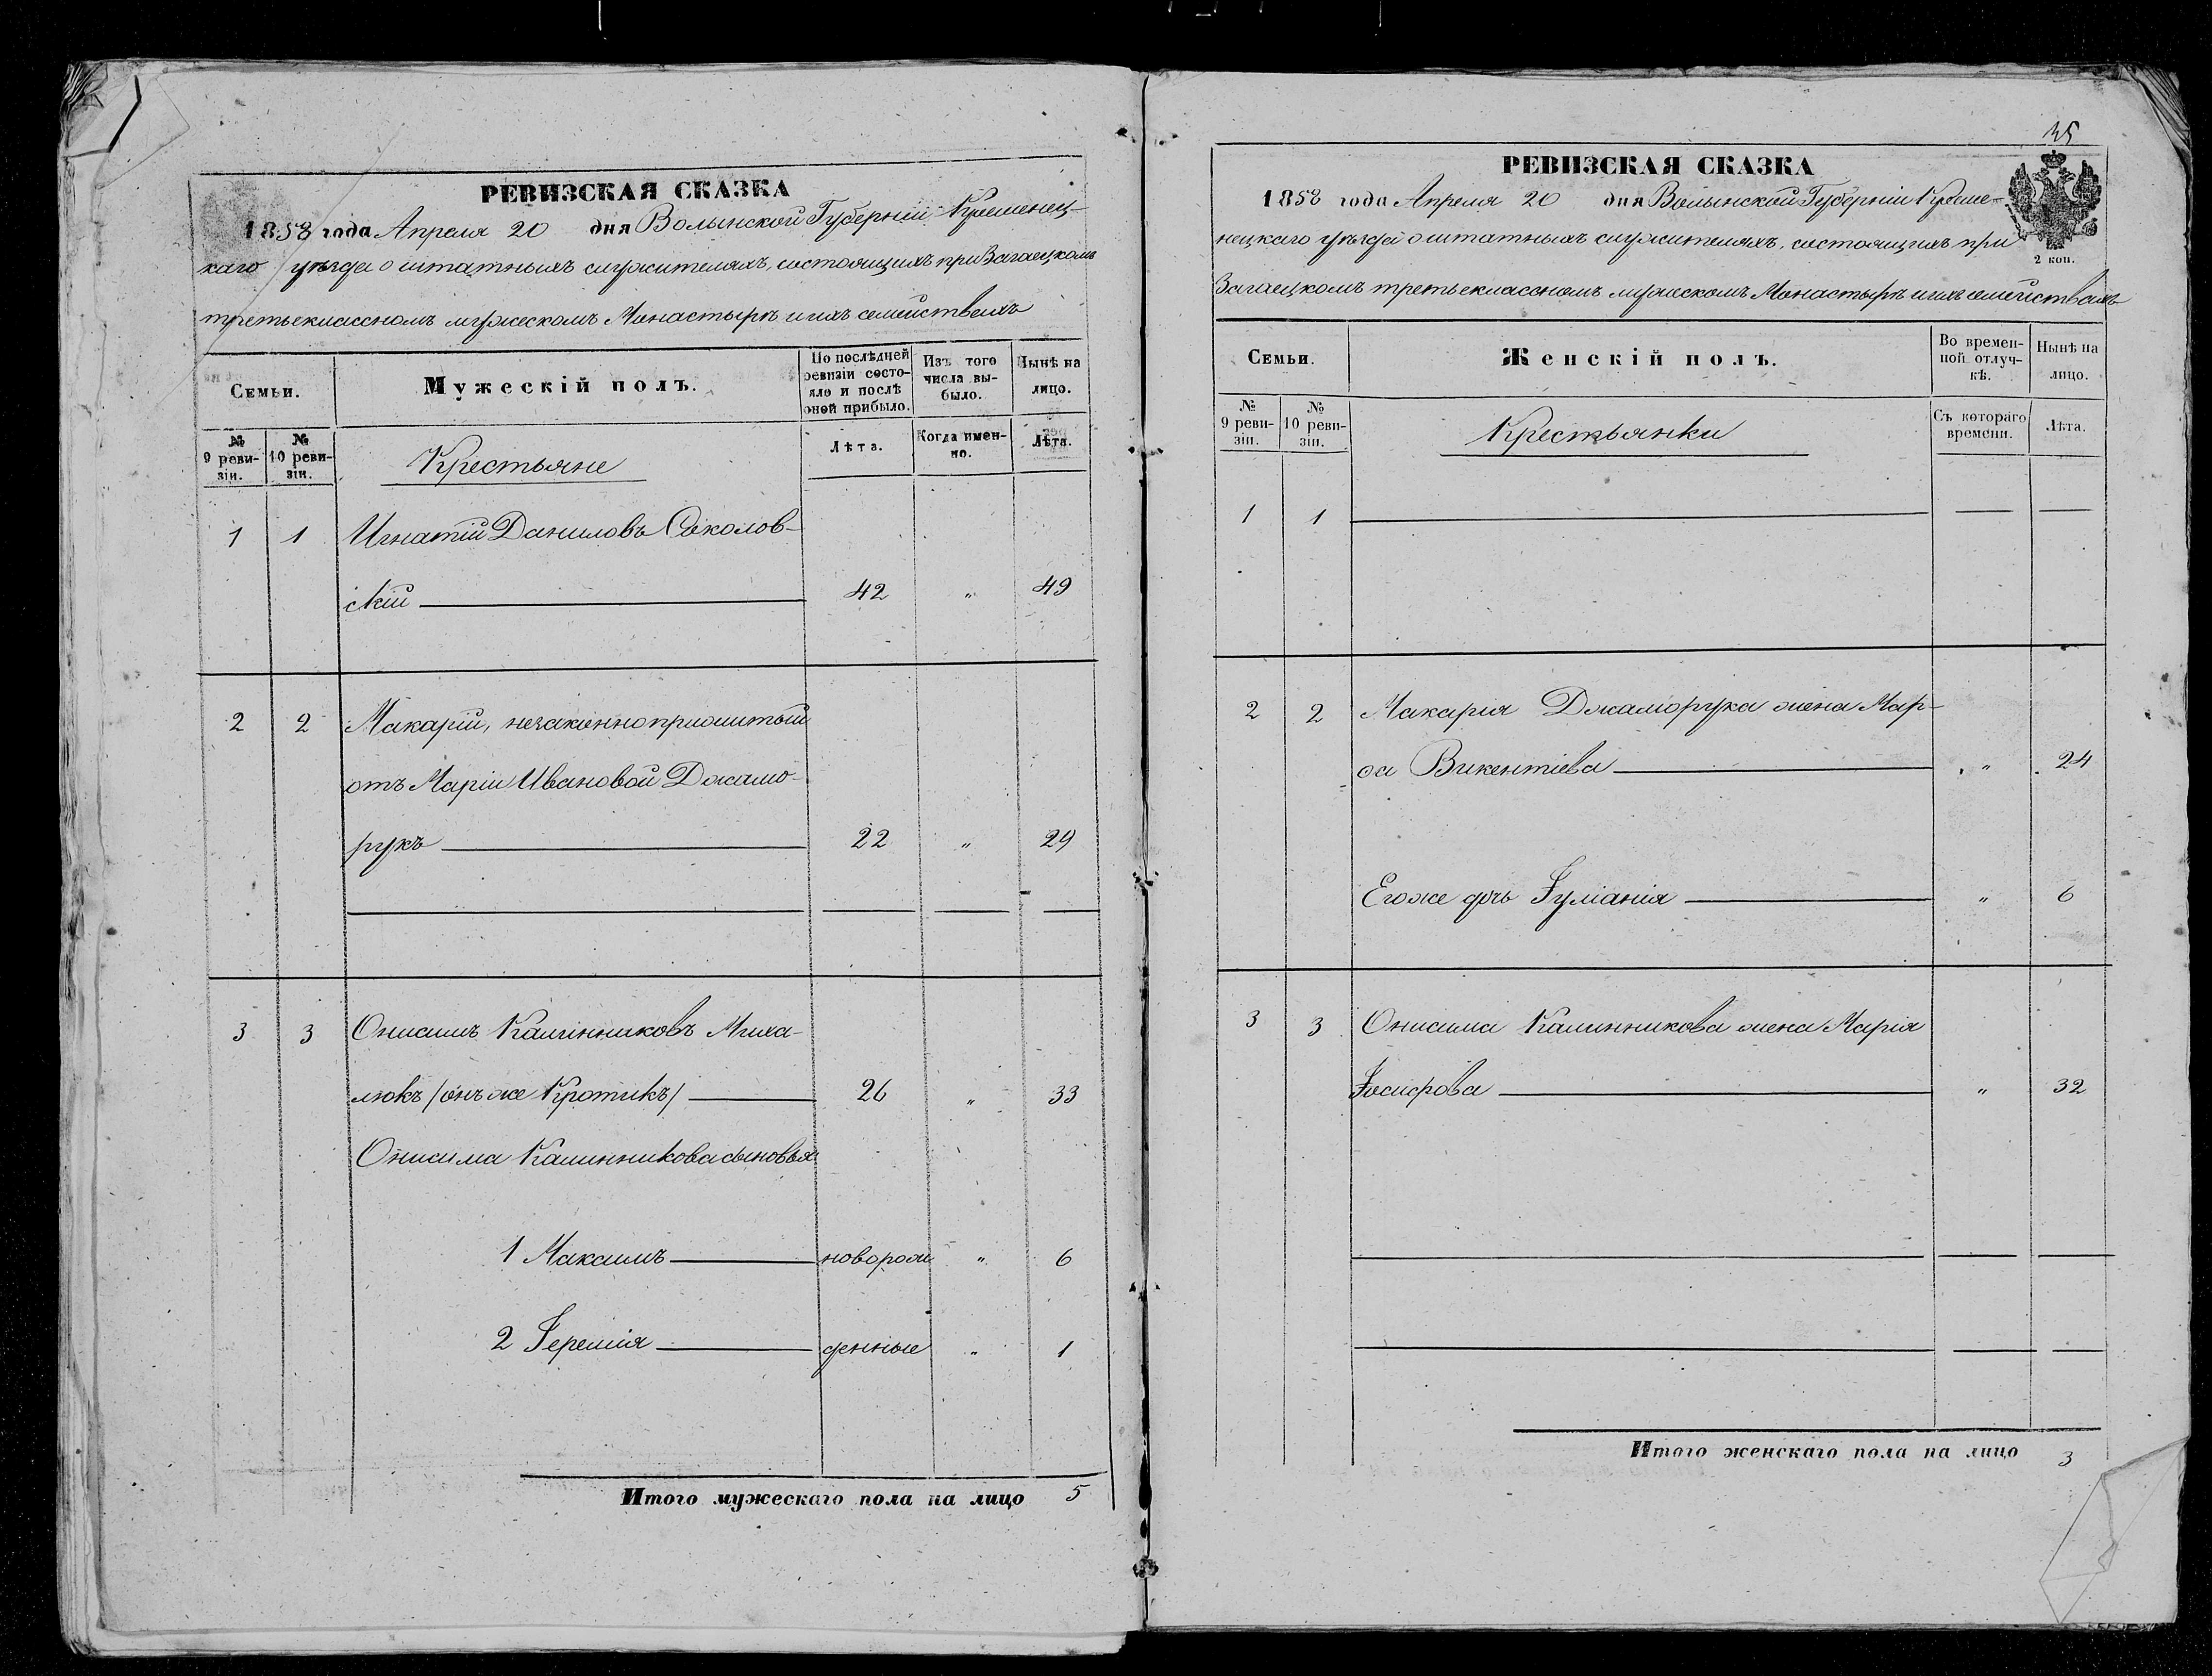 РЕВИЗСКАЯ СКАЗКА
1858 года Апреля 20 дня Волынской Губерніи Кременец-
каго уѣзда о штатныхъ служителяхъ, состоящихъ при Загаецкомъ
третьеклассномъ мужескомъ Монастырѣ и ихъ семействахъ
Семьи.
Мужескій полъ.
По послѣдней ревизіи состо-
яло и послѣ
оной прибыло.
Изъ того
числа вы-
было.
Нынѣ на
лицо.
№
9 реви-
зіи.
№
10 реви-
зіи.
Крестьяне
Лѣта.
Когда имен-
но.
Лѣта.
1 1 Игнатій Даниловъ Соколов-
скій 42 " 49
2 2 Макарій, незаконноприжитый
отъ Маріи Ивановой Джамо-
рукъ 22 " 29
3 3 Онисимъ Калинниковъ Миха-
люкъ /онъ же Кротикъ/ 26 " 33
Онисима Калинникова сыновья
1 Максимъ новорож " 6
2 Іеремія денные " 1
Итого мужескаго пола на лицо 5
35
РЕВИЗСКАЯ СКАЗКА
1858 года Апреля 20 дня Волынской Губерніи Креме-
нецкаго уѣзда о штатныхъ служителяхъ, состоящихъ при
2 коп.
Загаецкомъ третьеклассномъ мужескомъ Монастырѣ и ихъ семействахъ
Семьи.
Женскій полъ.
Во времен-
ной отлуч-
кѣ.
Нынѣ на
лицо.
№
9 реви-
зіи.
№
10 реви-
зіи.
Крестьянки
Съ котораго
времени.
Лѣта.
1 1
2 2 Макарія Джаморука жена Мар-
ѳа Викентіева " 24
Егоже дочь Іуліанія " 6
3 3 Онисима Калинникова жена Марія
Іосифова " 32
Итого женскаго пола на лицо 3